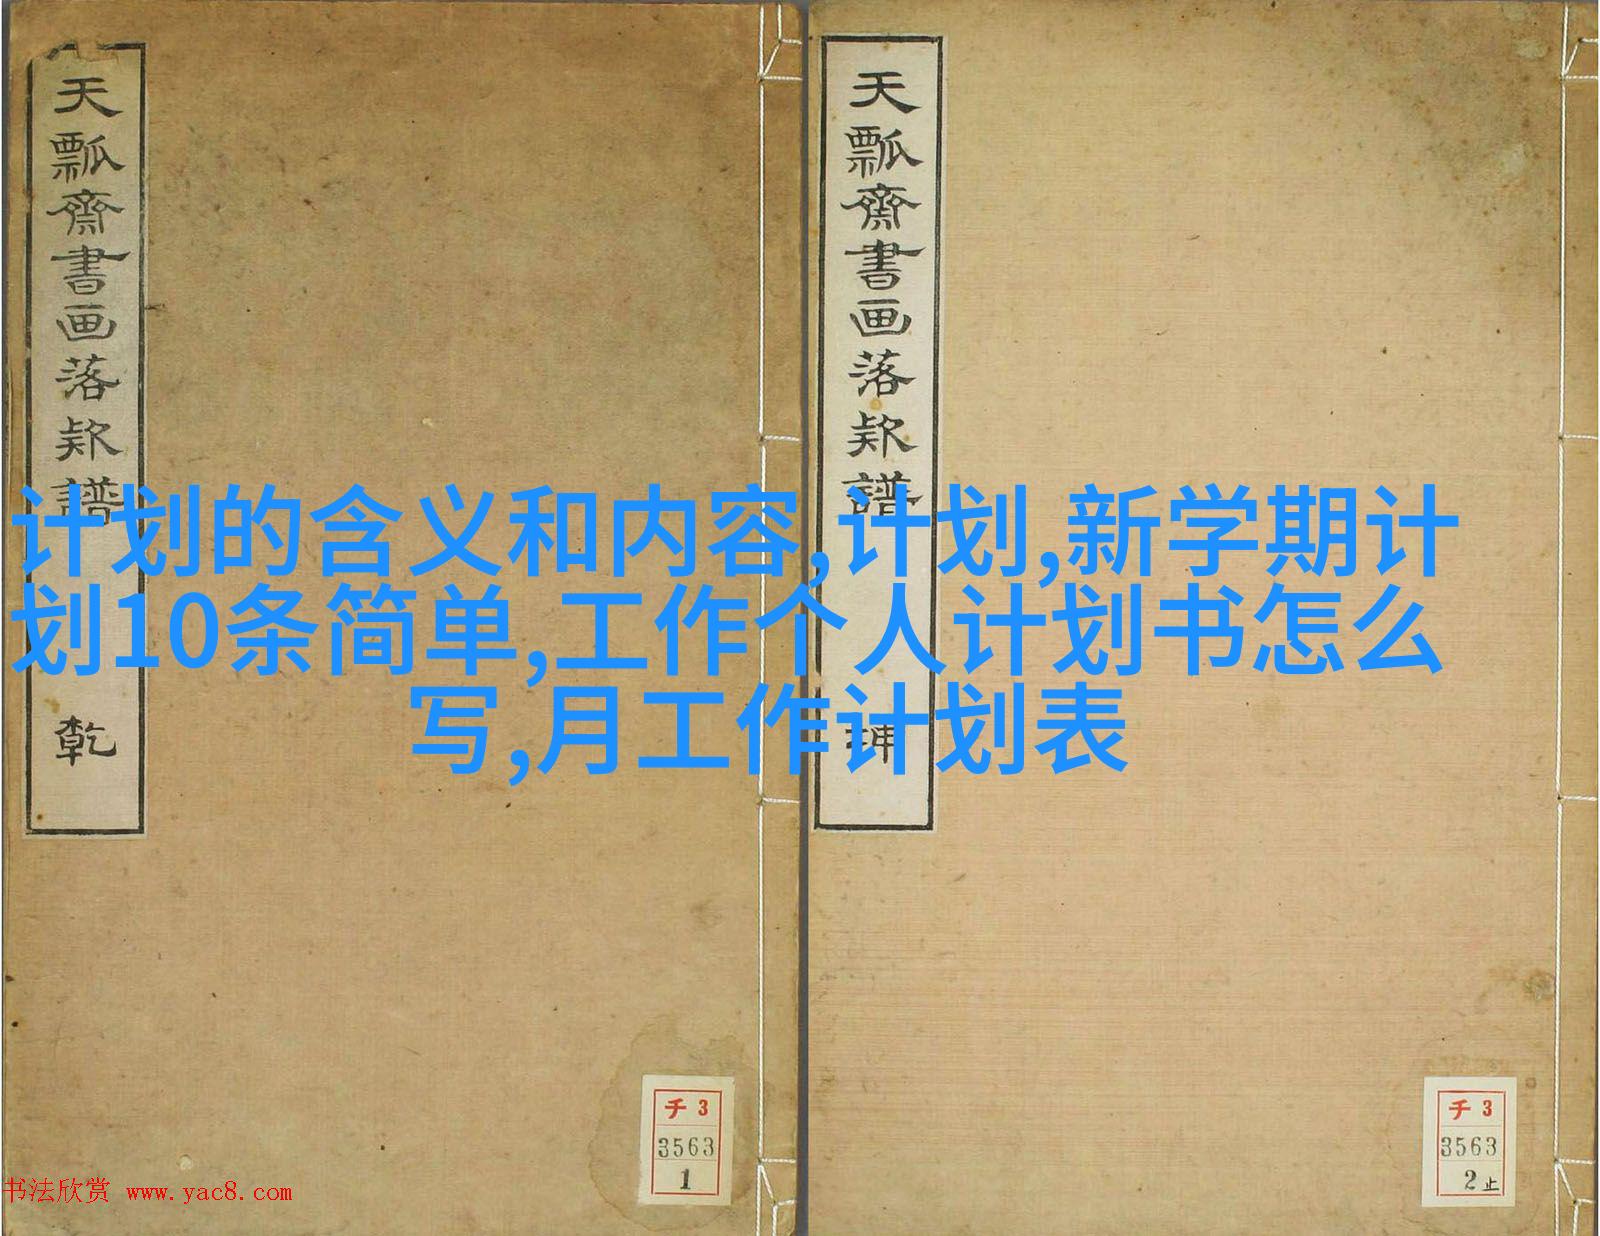 天瓢齋書画落款譜
乾
天瓢齋書画落款譜
坤
计划的含义和内容,计划,新学期计
划10条简单,工作个人计划书怎么
写,月工作计划表
チ3
3563
1
チ3
3563
2止
书法欣赏 www.yac8.com